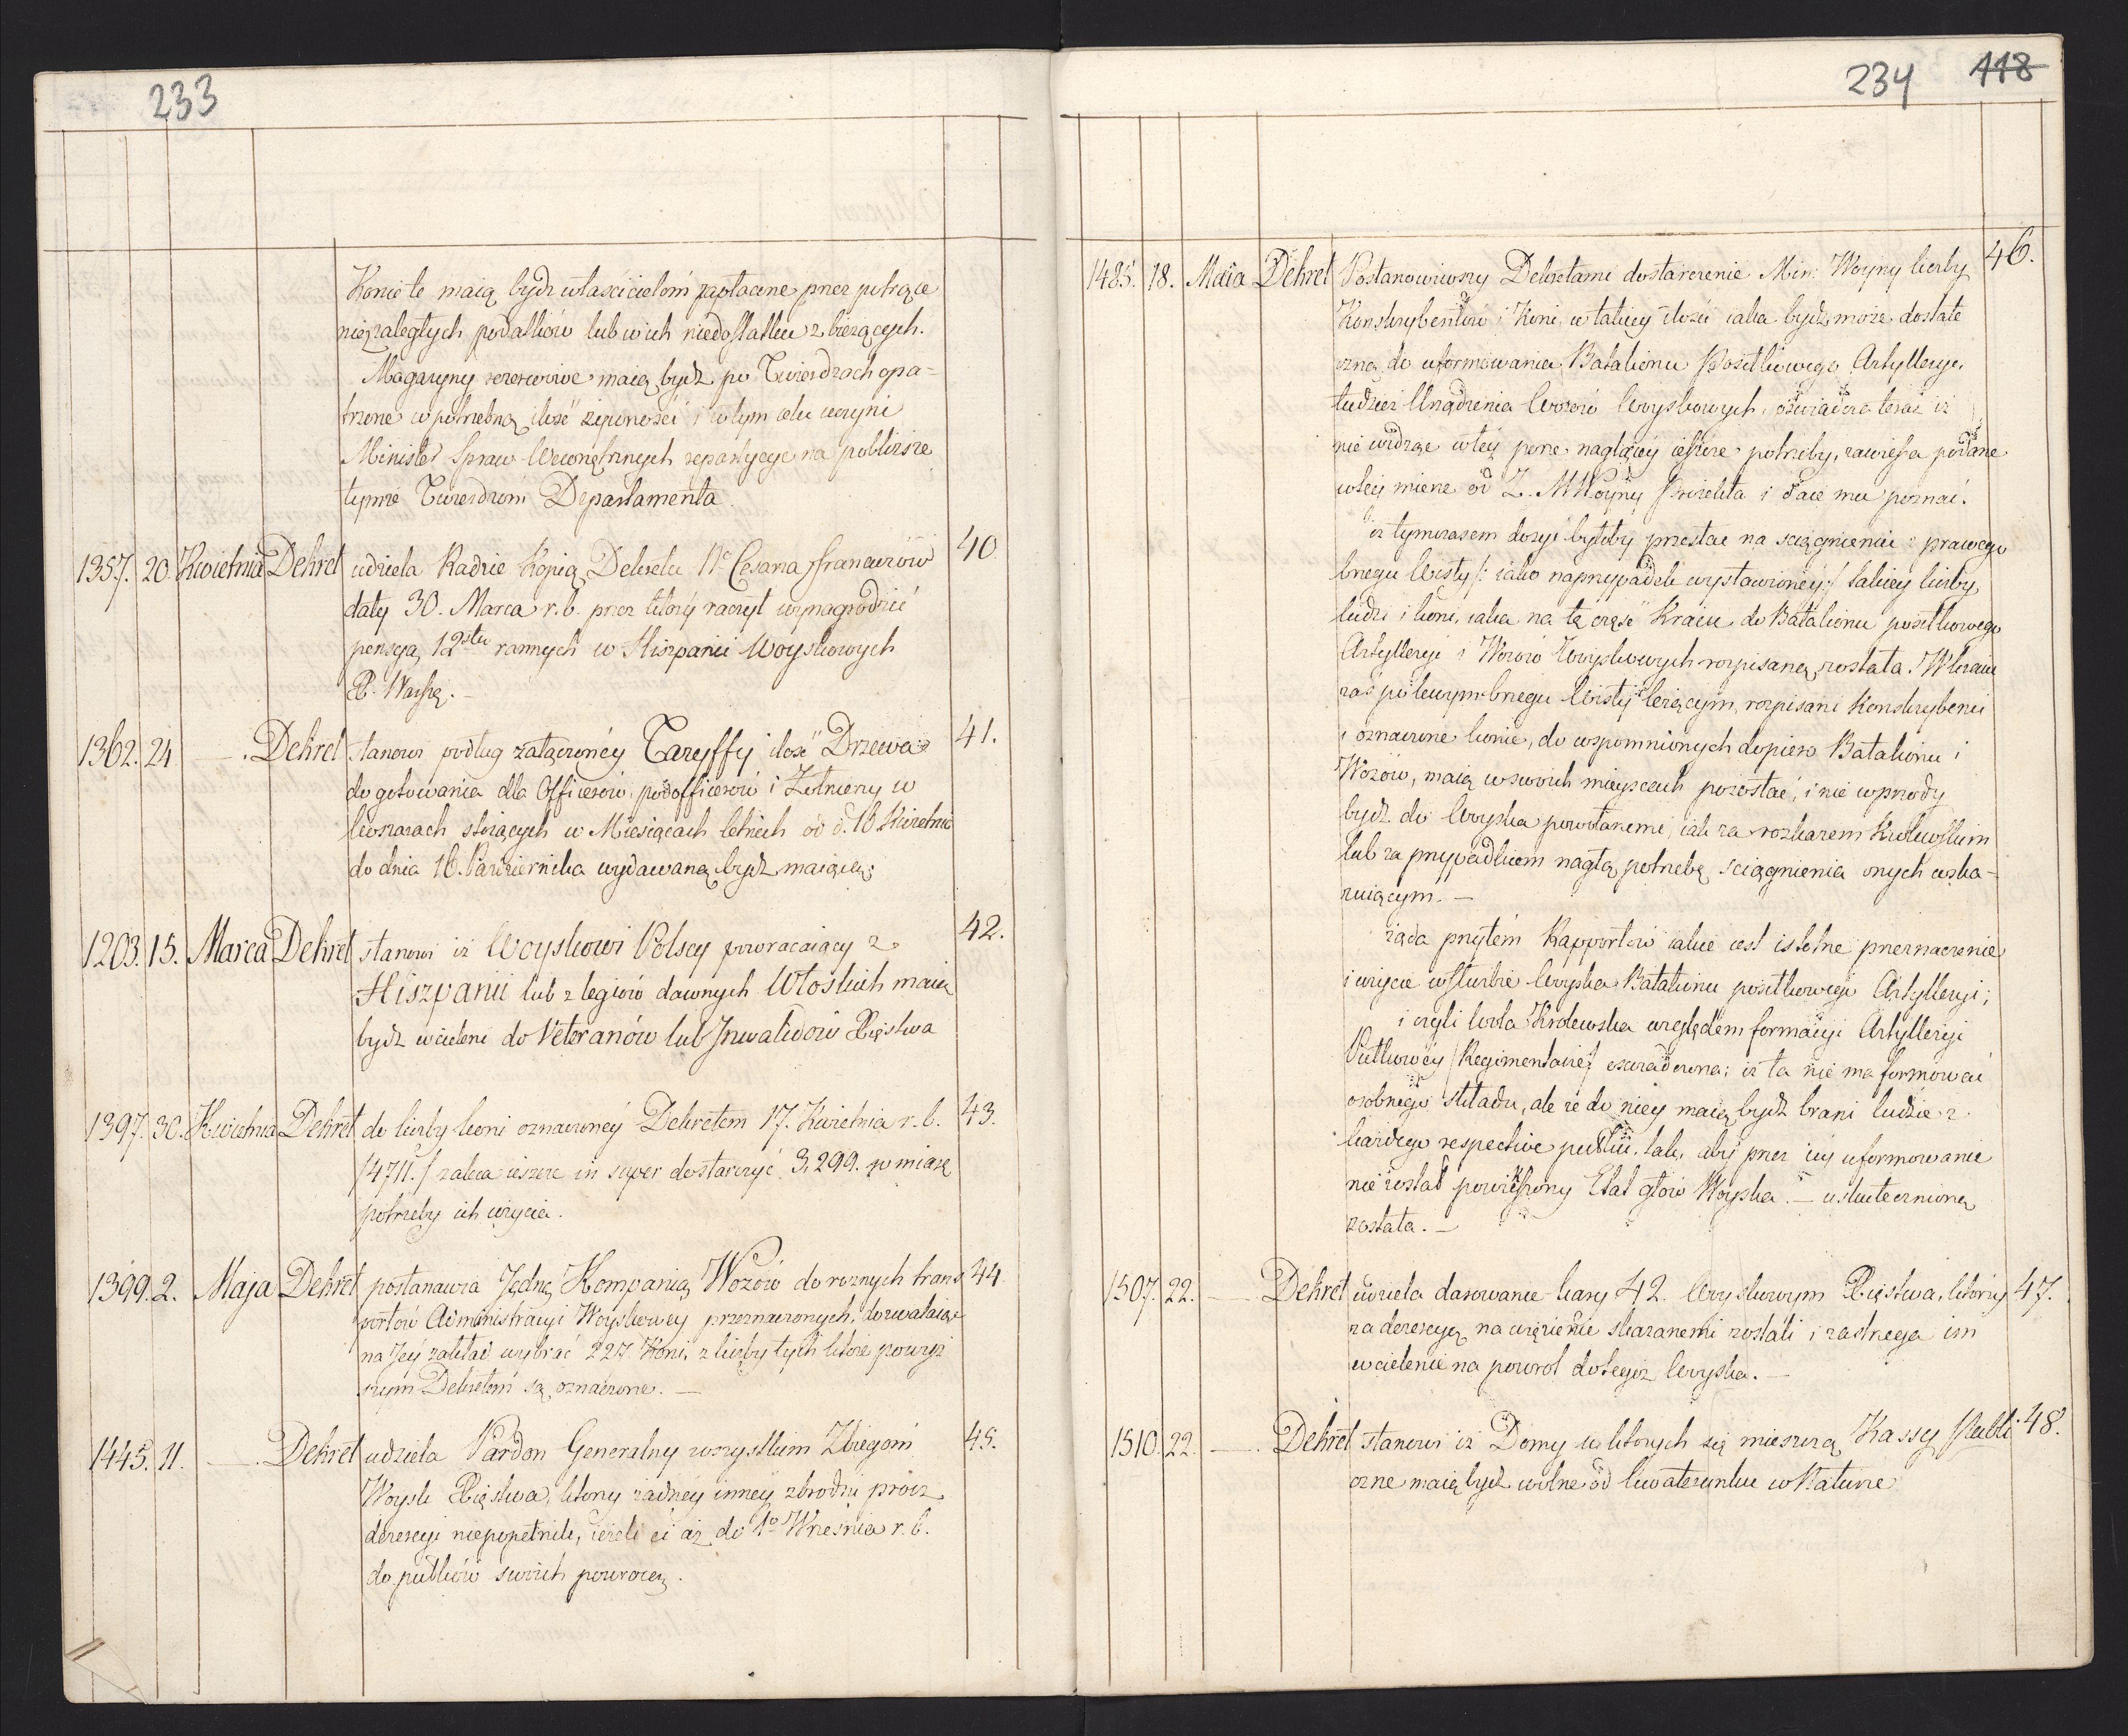 233
Konie te maią bydz właścicielom zapłacone przez potrące
nie zaległych podatków lub w ich niedostatku z bieżących.
Magazyny rezerwowe maią bydz po Twierdzach opa-
trzone w potrzebną ilość żywności i w tym celu uczyni
Minister Spraw Wewnętrznych repartycyę na pobliższe
tymże Twierdzom Departamenta
1357. 20. Kwietnia Dekret udziela Radzie Kopią Dekretu N. Cesarza ffrancuzów 40
daty 30. Marca r. b. przez który raczył wynagrodzić
pensyą 12stu rannych w Hiszpanii Woyskowych
X. Warsz.
1362. 24 — . Dekret stanowi podług załączonéy Taryffy ilość Drzewa 41.
do gotowania dla Officerów, podofficerów i Żołnierzy w
koszarach stoiących w Miesiącach letnich od d. 16 Kwietnia
do dnia 16. Października wydawaną bydz maiącą;
1203. 15. Marca Dekret stanowi iż Woyskowi Polscy powracaiący z 42.
Hiszpanii lub z legiów dawnych Włoskich maią
bydz wcieleni do Veteranów lub Inwalidów Xięstwa
1397. 30. Kwietnia Dekret do liczby koni oznaczonéy Dekretem 17. Kwietnia r. b. 43.
/4711./ zaleca ieszcze in super dostarczyć 3,299. w miarę
potrzeby ich użycia.
1399. 2. Maja Dekret postanawia Jedną Kompanią Wozów do roznych trans 44
portów Administracyi Woyskowey przeznaczonych, dozwalaiąc
na Jéy zakład wybrać 227. Koni, z liczby tych które powyż
szym Dekretem są oznaczone. —
1445. 11. — . Dekret udziela Pardon Generalny wszystkim Zbiegom 45.
Woysk Xięstwa, którzy żadnéy innéy zbrodni prócz
dezercyi niepopełnili, ieżeli ci aż do 1o Września r. b.
do pułków swoich powrócą.
234 118
1485. 18. Maia Dekret Postanowiwszy Dekretami dostarczenie Min: Woyny liczby 46.
Konskrybentów i Koni, w takiey ilości iaka bydz może dostate
czną do uformowania Batalionu Posiłkowego Artylleryi,
tudzież Urządzenia Wozów Woyskowych, oświadcza teraz iż
nie widząc w téy porze naglącéy ieszcze potrzeby, zawiesza podane
w téy mierze od Z. M Woyny Proiekta i daie mu poznać.
iż tymczasem dosyć byłoby przestać na ściągnieniu z prawego
brzegu Wisły /: iako na przypadek wystawionéy :/ takiey liczby
ludzi i koni, iaka na tę część Kraiu do Batalionu posiłkowego
Artylleryi i Wozów Woyskowych rozpisaną została. W kraiu
zaś po lewym brzegu Wisły leżącym, rozpisani Konskrybenci
i oznaczone konie, do wspomnionych dopiero Batalionu i
Wozów, maią w swoich mieyscach pozostać, i nie wprzódy
bydz do Woyska powołanemi, iak za rozkazem Krolewskim
lub za przypadkiem nagłą potrzebę ściągnienia onych wska-
zuiącym. —
żąda przytém Rapportów iakie iest istotne przeznaczenie
i użycie w służbie Woyska Batalionu posiłkowego Artylleryi;
i czyli wola Krolewska względem formacyi Artylleryi
Pułkowéy /Regimentaire/ oswiadczona; iż ta nie ma formować
osobnego składu, ale że do niéy maią bydz brani ludzie z
każdego respective pułku, tak, aby przez iéy uformowanie
nie został powiększony Etat głów Woyska. — uskutecznioną
została. —
1507. 22. — Dekret udziela darowanie kary 42. Woyskowym Xięstwa, którzy 47.
za dezercyę na więzienie skazanemi zostali i zastrzega im
wcielenie na powrot do tegoż Woyska. —
1510. 22. — . Dekret stanowi iż Domy w których się mieszczą Kassy Publi 48.
czne maią bydz wolne od kwaterunku w Naturze